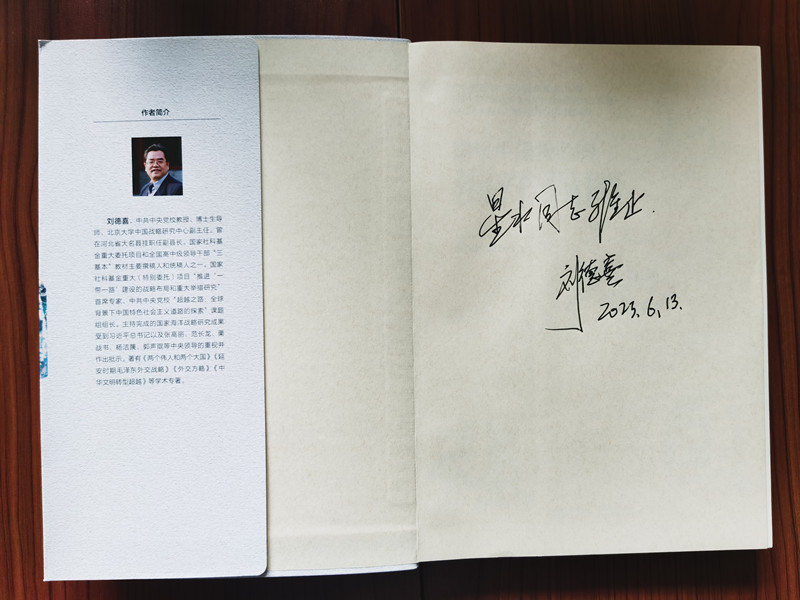 作者简介
刘德喜,中共中央党校教授,博士生导
师,北京大学中国战略研究中心副主任。曾
在河北省大名县挂职任副县长。国家社科基
金重大委托项目和全国高中级领导干部“三
基本”教材主要撰稿人和统稿人之一。国家
社科基金重大(特别委托)项目“推进‘一
带一路’建设的战略布局和重大举措研究”
首席专家、中共中央党校“超越之路:全球
背景下中国特色社会主义道路的探索”课题
组组长。主持完成的国家海洋战略研究成果
受到习近平总书记以及张高丽、范长龙、栗
战书、杨洁篪、郭声琨等中央领导的重视并
作出批示。著有《两个伟人和两个大国》《延
安时期毛泽东外交战略》《外交方略》《中
华文明转型超越》等学术专著。
星水同志雅正.
刘德喜
2023.6.13.